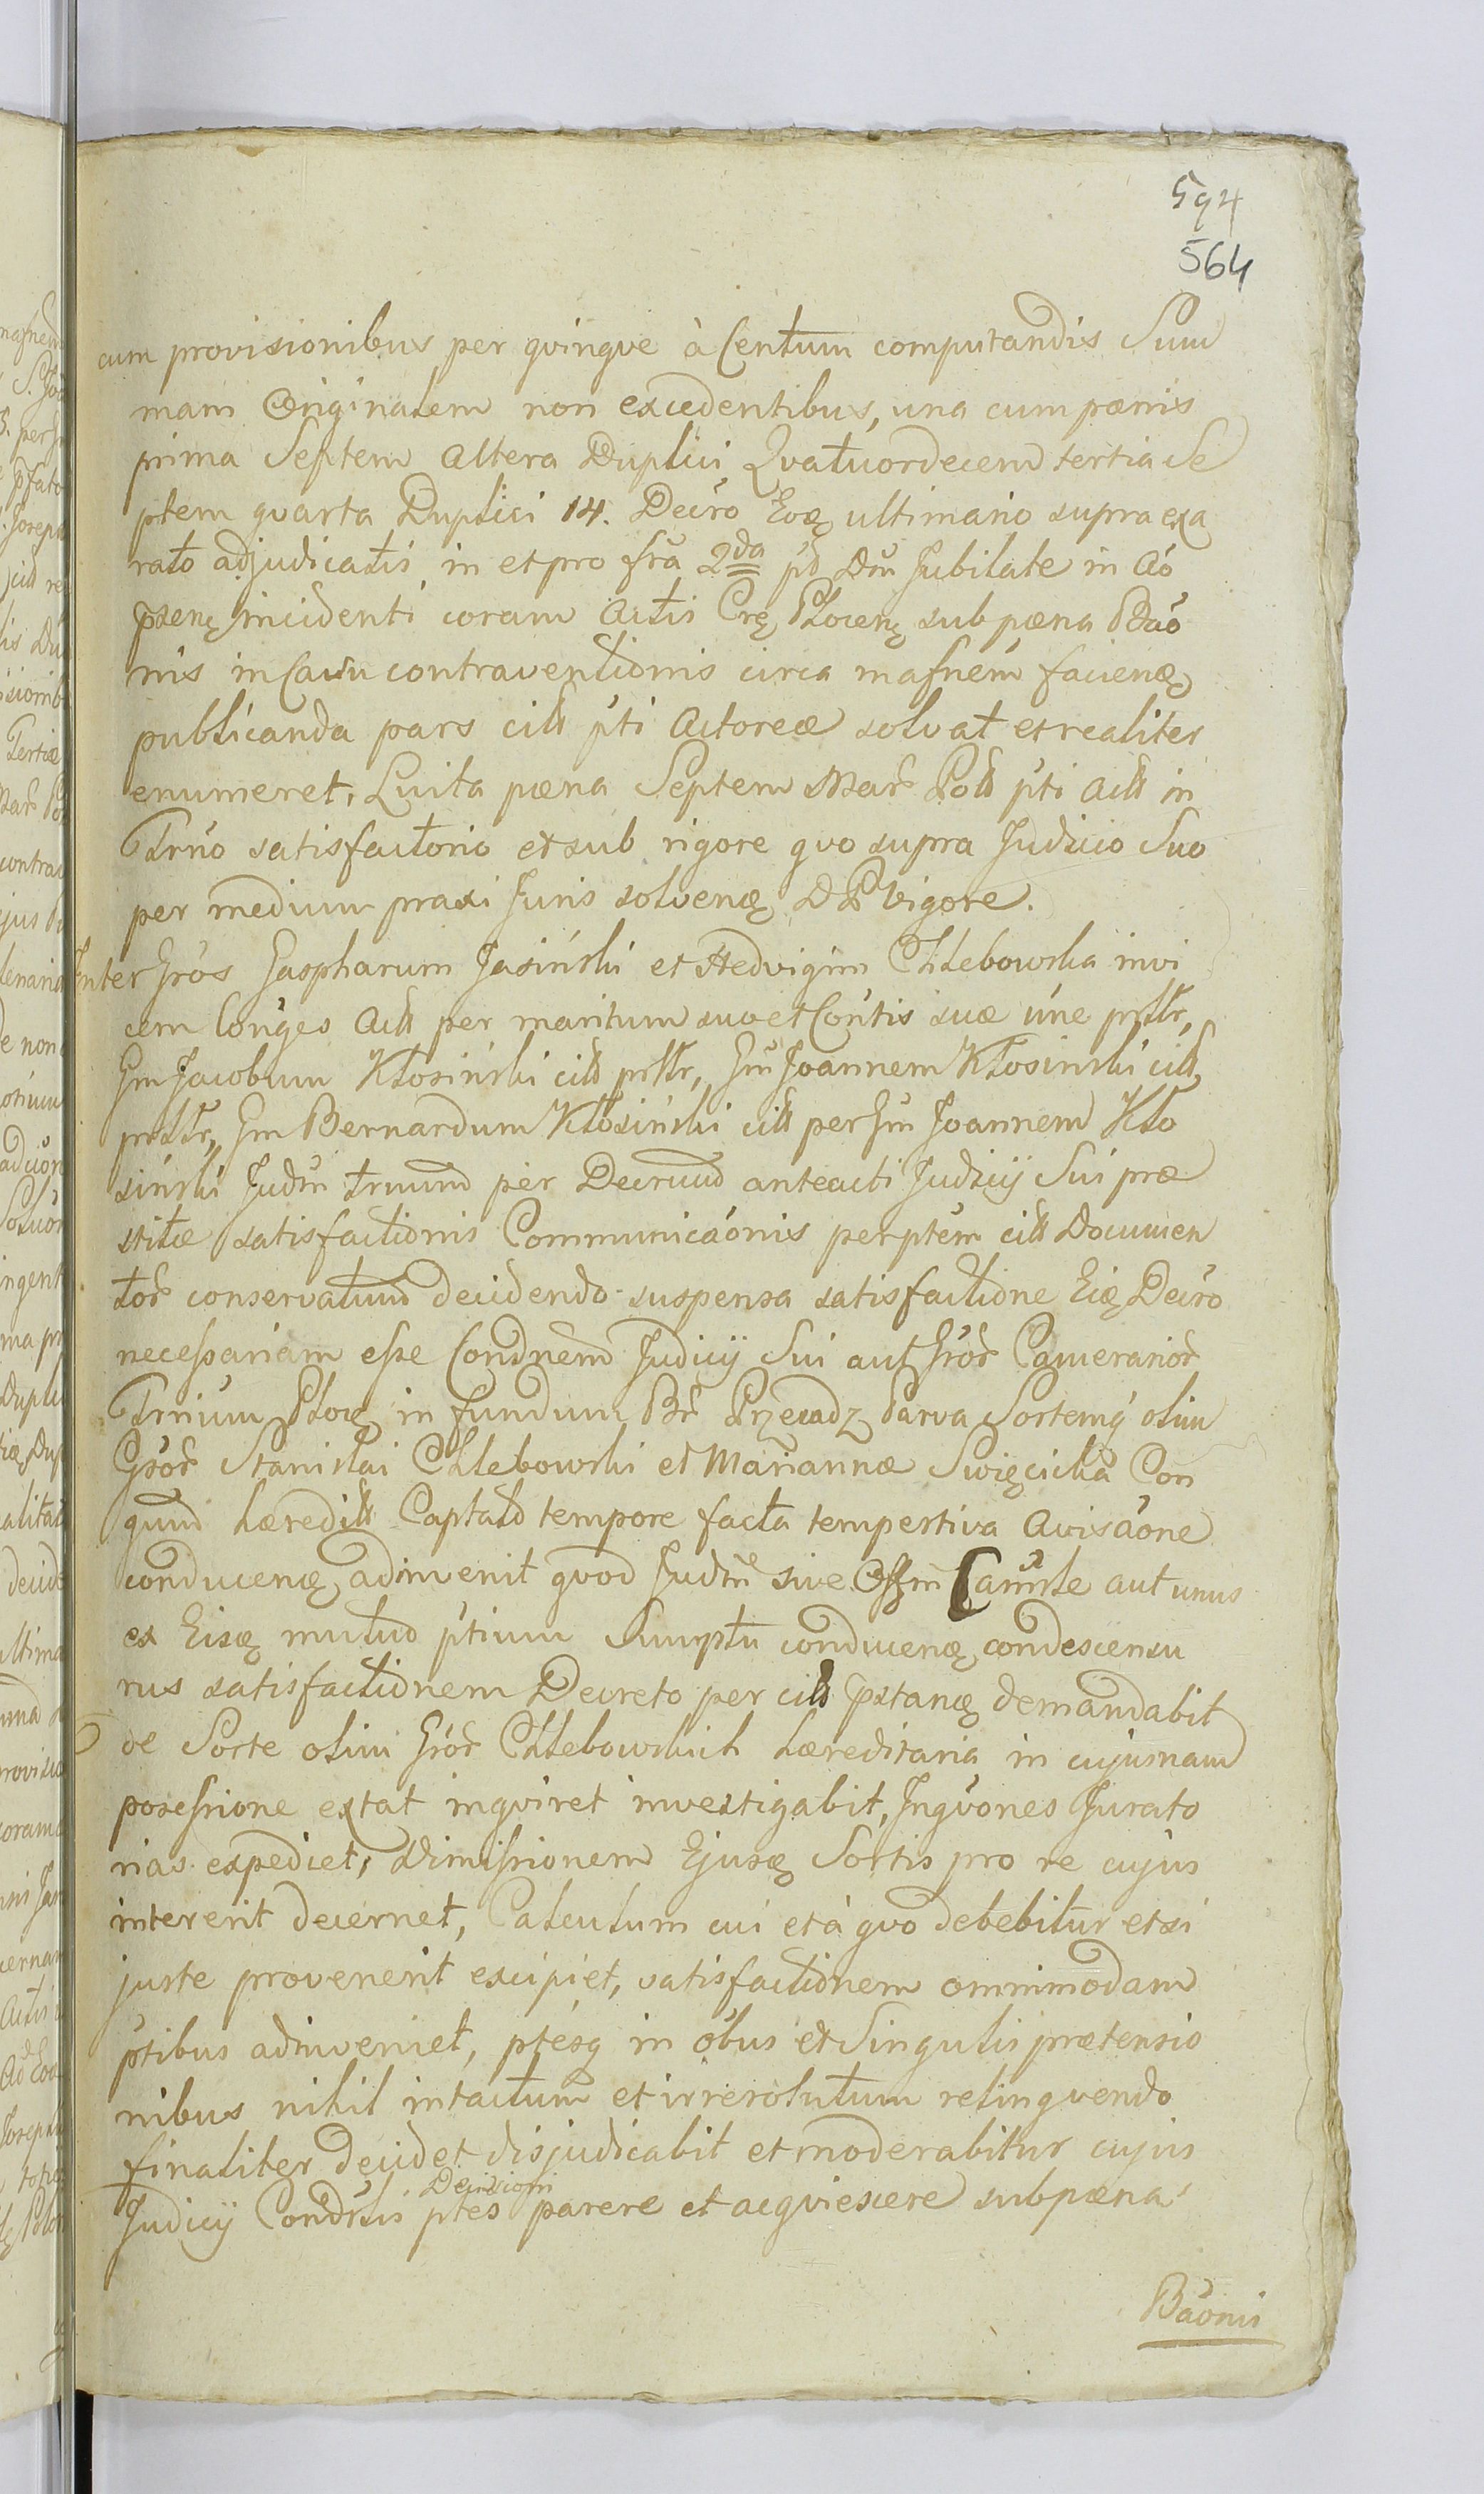 594
564
cum provisionibus per qvinqve à Centum computandis Sum
mam Originalem non excedentibus, una cum pænis
prima Septem Altera Duplici Qvatuordecem tertia Se
ptem qvarta Duplici 14. Decro Eoq ultimario supra exa
rato adjudicatis, in et pro fra 2da pd Dm Jubilate in Ao
pxenq incidenti coram Actis Crę Płocenq sub pæna Bão
nis in Casu contraventionis circa mafnem facienq
publicanda pars citt pti Actoreæ solvat et realiter
enumeret, Luita pæna Septem Mar Poll pti Actt in
Trno satisfactorio et sub rigore qvo supra Judicio Suo
per medium praxi Juris solvenq D P vigore.
Inter Gros Gaspharum Jasiński et Hedvigim Chlebowska invi
cem Conges Actt per maritum suo et Contis suæ une prttr,
Gm Jacobum Kłosiński citt prttr, Gm Joannem Kłosinski citt
prttr, Gm Bernardum Kłosiński citt per Gm Joannem Kło
siński Judm trnum per Decrum anteacti Judicij Sui præ
stitæ satisfactionis Communicaonis per ptem citt Documen
tor conservatum decidendo suspensa satisfactione Eiq Decro
necessariam esse Condnem Judicij Sui aut Gror Camerarior
Trnium Płocq in fundum Br Przeradz Parva Sortemq olim
Gror Stanislai Chlebowski et Mariannæ Swięcicka Con
gum hæredill Captato tempore facta tempestiva Avisãone
conducenq adinvenit qvod Judm sive Offm Camrle aut unus
ex Eisq mutuo ptium Sumptu conducenq condescensu
rus satisfactionem Decreto per citt pxtanq demandabit
de Sorte olim Gror Chlebowskich hæreditaria in cujusnam
posessione extat inqviret investigabit, Inqvones Jurato
rias expediet, Dimissionem Ejusq Sortis pro re cujus
intererit decernet, Calculum cui et à qvo debebitur et si
juste provenerit excipiet, satisfactionem omnimodam
ptibus adinveniet, ptesq in obus et Singulis prætensio
nibus nihil intactum et irresolutum relinqvendo
finaliter decidet disjudicabit et moderabitur cujus
Judicij Condrsis ptes Decisioni parere et acqviescere sub pæna
Bãonis